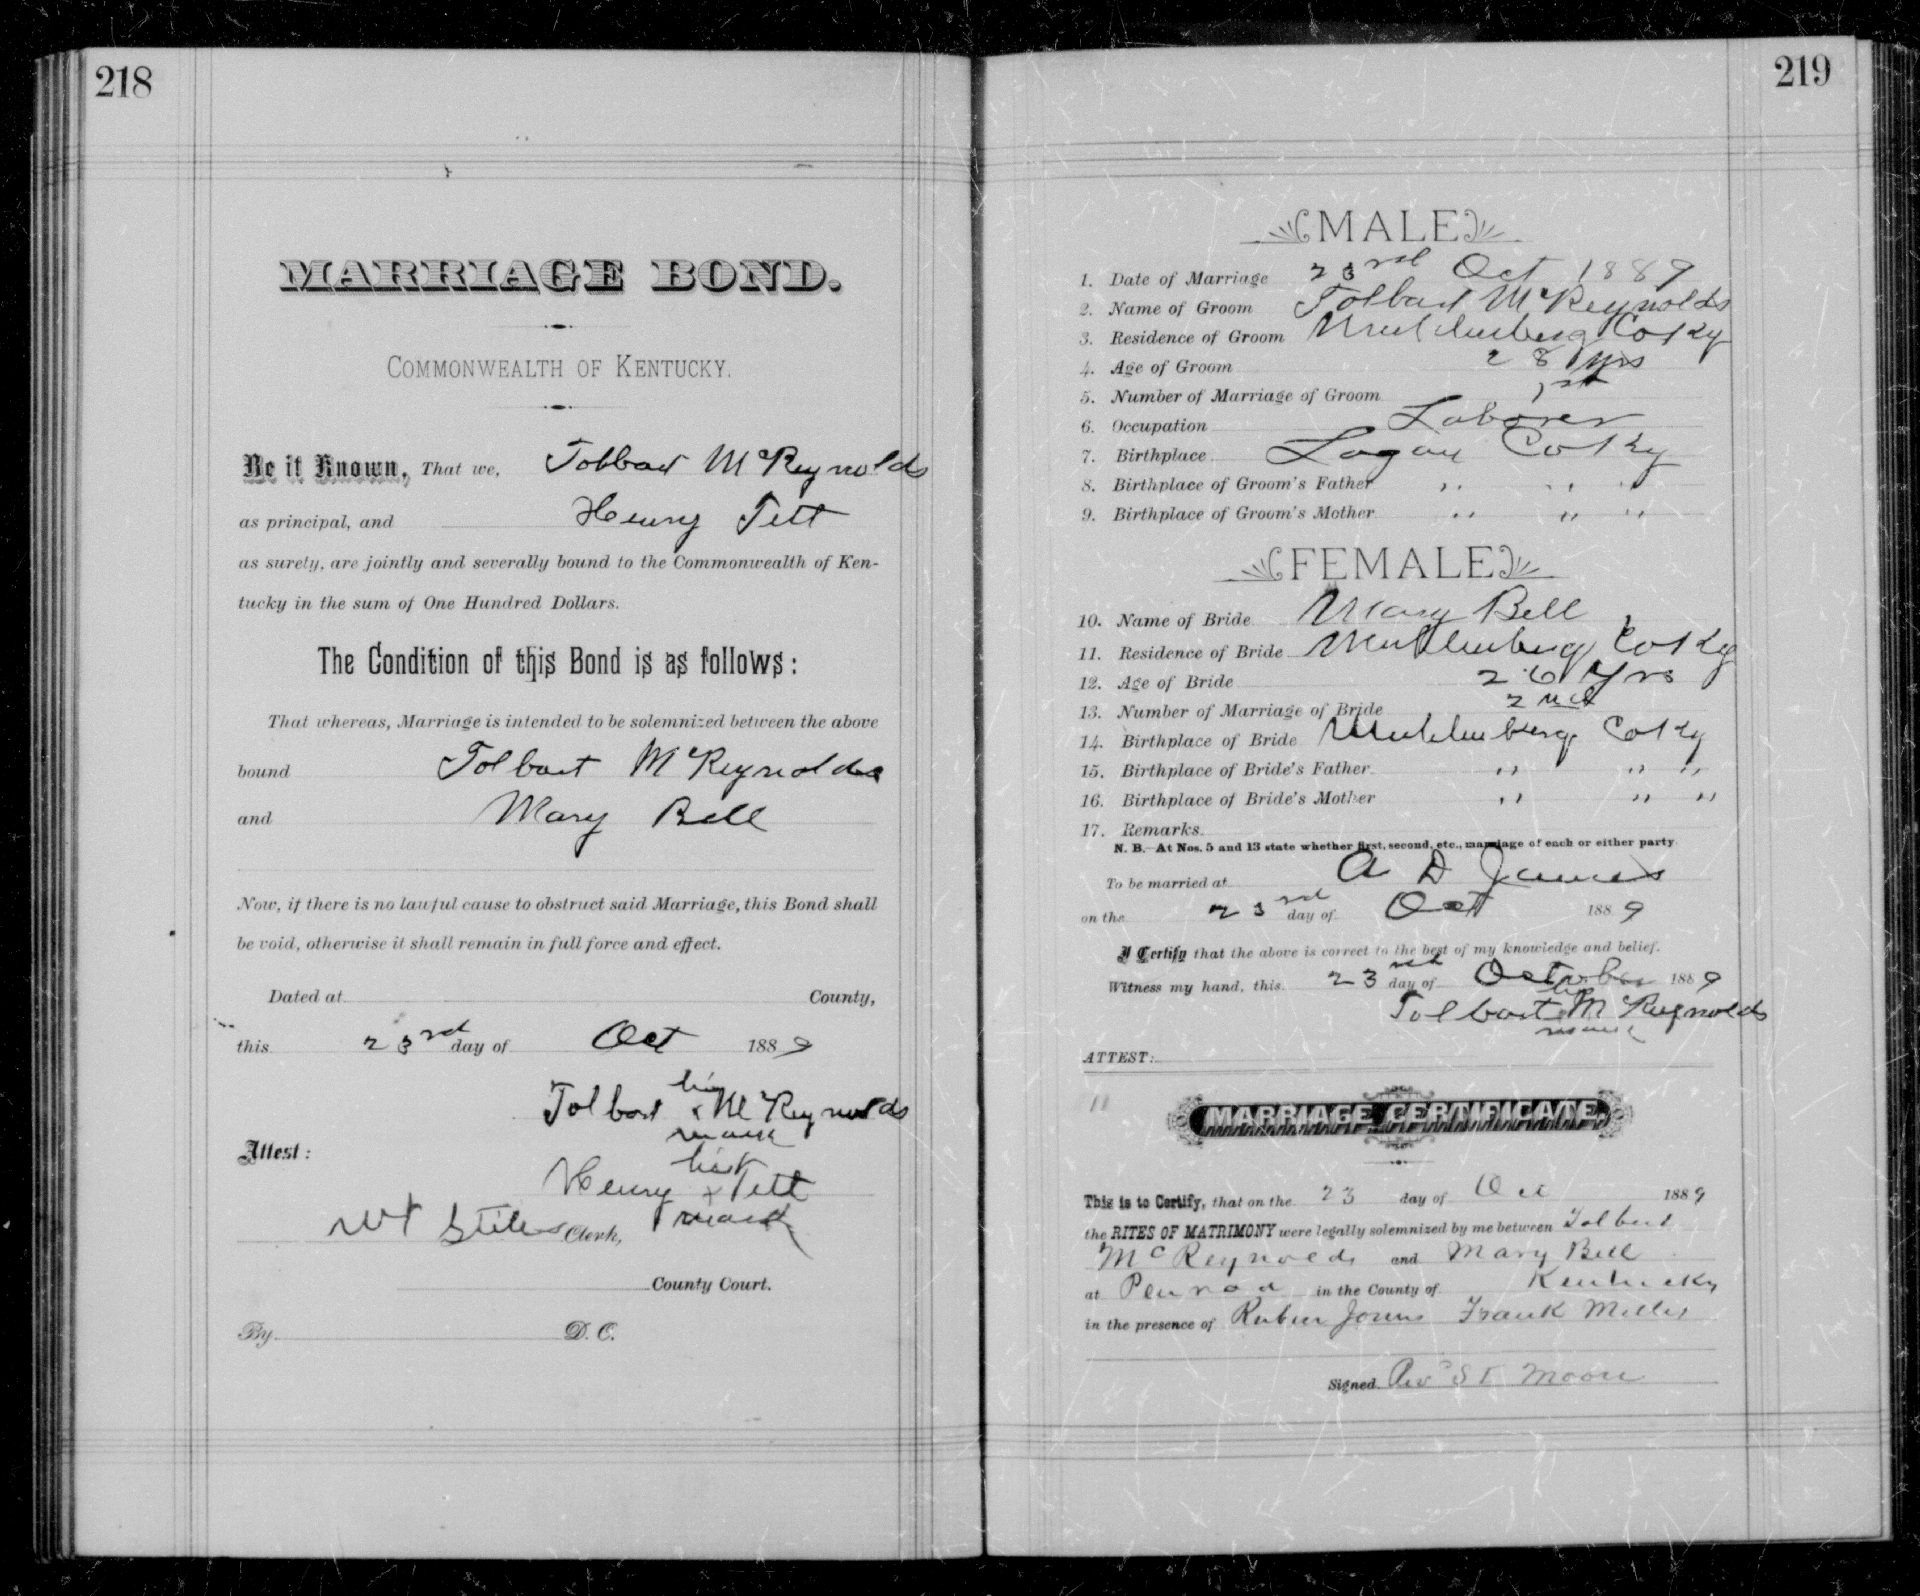 218
MARRIAGE BOND.
COMMONWEALTH OF KENTUCKY.
Be it Known, That we, Tolbart McReynolds
as principal, and Henry Tett
as surety, are jointly and severally bound to the Commonwealth of Ken-
tucky in the sum of One Hundred Dollars.
The Condition of this Bond is as follows:
That whereas, Marriage is intended to be solemnized between the above
bound Tolbart McReynolds
and Mary Bell
Now, if there is no lawful cause to obstruct said Marriage, this Bond shall
be void, otherwise it shall remain in full force and effect.
Dated at County,
this 23rd day of Oct 1889
his
Tolbart x McReynolds
mark
Attest:
his
Henry x Tett
mark
WT Stiles Clerk,
County Court.
By D. C.
219
MALE
1. Date of Marriage 23rd Oct 1889
2. Name of Groom Tolbart McReynolds
3. Residence of Groom Muhlenberg Co Ky
4. Age of Groom 28 yrs
5. Number of Marriage of Groom 1st
6. Occupation Laborer
7. Birthplace Logan Co Ky
8. Birthplace of Groom's Father " " "
9. Birthplace of Groom's Mother " " "
FEMALE
10. Name of Bride Mary Bell
11. Residence of Bride Muhlenberg Co Ky
12. Age of Bride 26 Yrs
13. Number of Marriage of Bride 2nd
14. Birthplace of Bride Muhlenberg Co Ky
15. Birthplace of Bride's Father " " "
16. Birthplace of Bride's Mother " " "
17. Remarks
N. B.—At Nos. 5 and 13 state whether first, second, etc., marriage of each or either party
To be married at A D James
on the 23rd day of Oct 1889
I Certify that the above is correct to the best of my knowledge and belief.
Witness my hand, this 23rd day of October 1889
his
Tolbart x McReynolds
mark
ATTEST:
MARRIAGE CERTIFICATE.
This is to Certify, that on the 23 day of Oct 1889
the RITES OF MATRIMONY were legally solemnized by me between Tolbert
McReynolds and Mary Bell
at Penrod in the County of Kentucky
in the presence of Frank Miller
Signed Rev S Moore